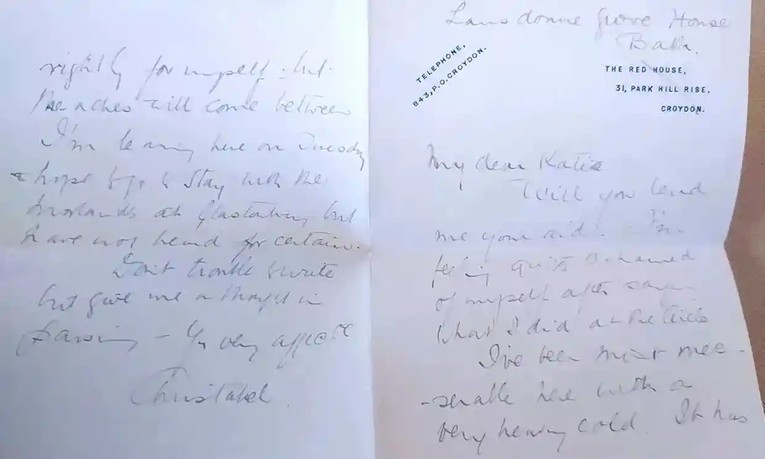 Lansdowne Grove House
Bath.
TELEPHONE,
843, P.O. CROYDON.
THE RED HOUSE,
31, PARK HILL RISE,
CROYDON.
My dear Katie
Will you lend
me your aid. I'm
feeling quite ashamed
of myself after saying
what I did at the
I've been most mee-
-serable here with a
very heavy cold. It has
rightly for myself - but
the aches will come between
I'm leaving here on Tuesday
& hope to go & stay with the
at Glastonbury but
have not heard for certain.
Don't trouble to write
but give me a thought in
passing - Yr very affecte
Christabel.